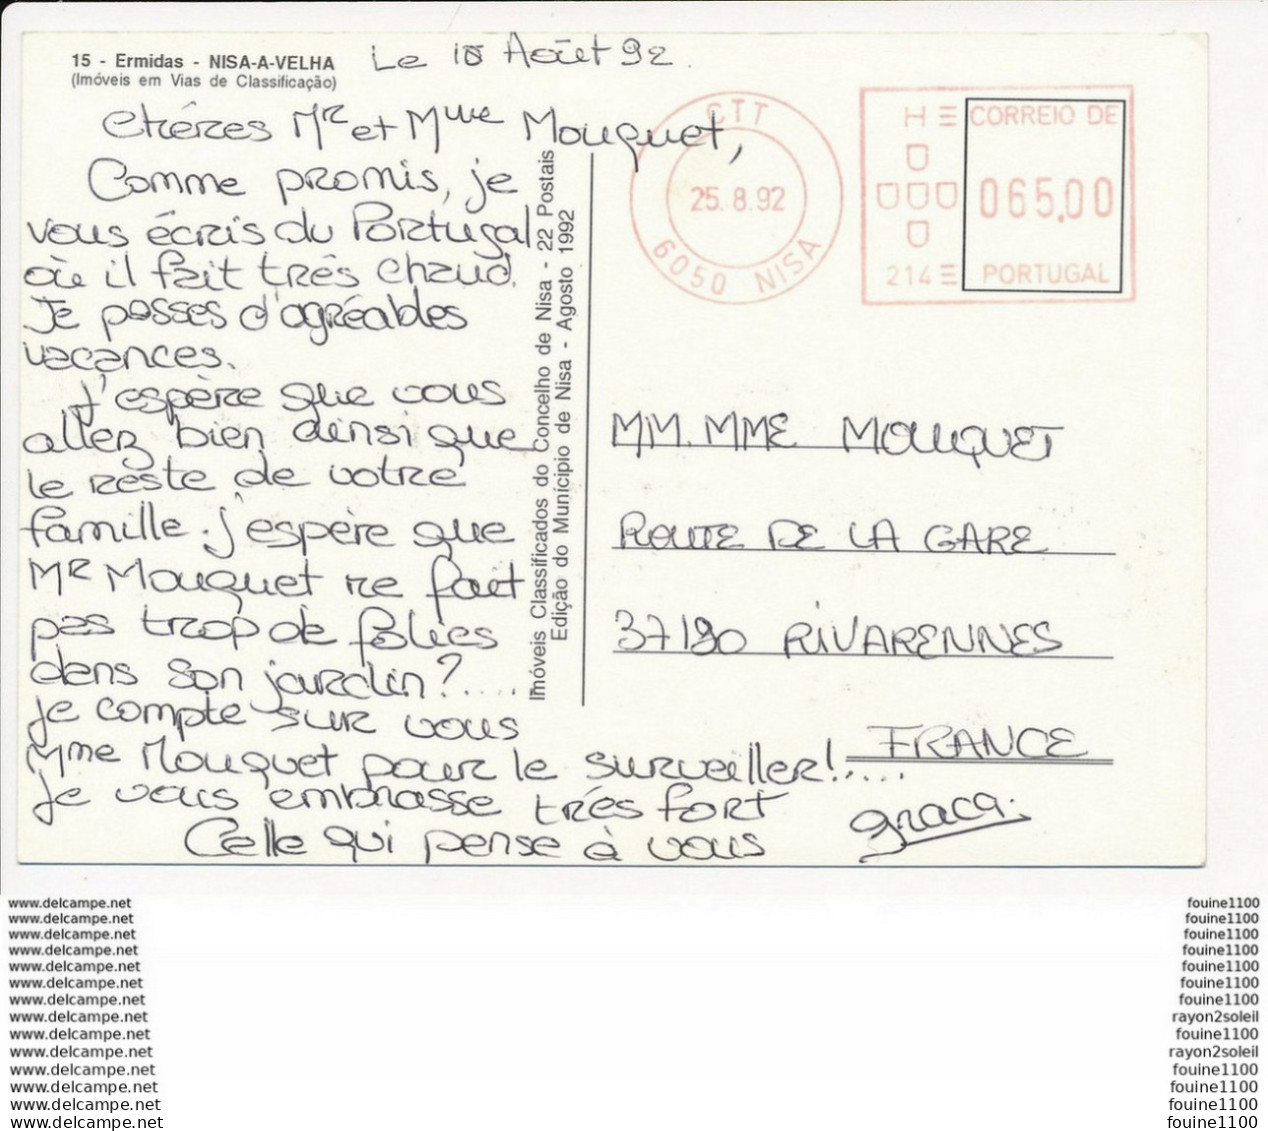 15 - Ermidas - NISA-A-VELHA
(Imóveis em Vias de Classificação)
Le 18 Août 92.
Chéres Mr et Mme Mouquet,
Comme promis, je
vous écris du Portugal
où il fait trés chaud.
Je passes d'agréables
vacances.
J'espère que vous
allez bien ainsi que
le reste de votre
famille. j'espère que
Mr Mouquet ne fait
pas trop de folies
dans son jardin?.....
Je compte sur vous
Mme Mouquet pour le surveiller!.....
Je vous embrasse trés fort
Celle qui pense à vous
graca.
Imóveis Classificados do Concelho de Nisa - 22 Postais
Edição do Município de Nisa - Agosto - 1992
CTT
25.8.92
6050 NISA
CORREIO DE
065,00
PORTUGAL
214
MM. MME MOUQUET
ROUTE DE LA GARE
37190 RIVARENNES
FRANCE
www.delcampe.net
www.delcampe.net
www.delcampe.net
www.delcampe.net
www.delcampe.net
www.delcampe.net
www.delcampe.net
www.delcampe.net
www.delcampe.net
www.delcampe.net
www.delcampe.net
www.delcampe.net
www.delcampe.net
www.delcampe.net
fouine1100
fouine1100
fouine1100
fouine1100
fouine1100
fouine1100
fouine1100
rayon2soleil
fouine1100
rayon2soleil
fouine1100
fouine1100
fouine1100
fouine1100